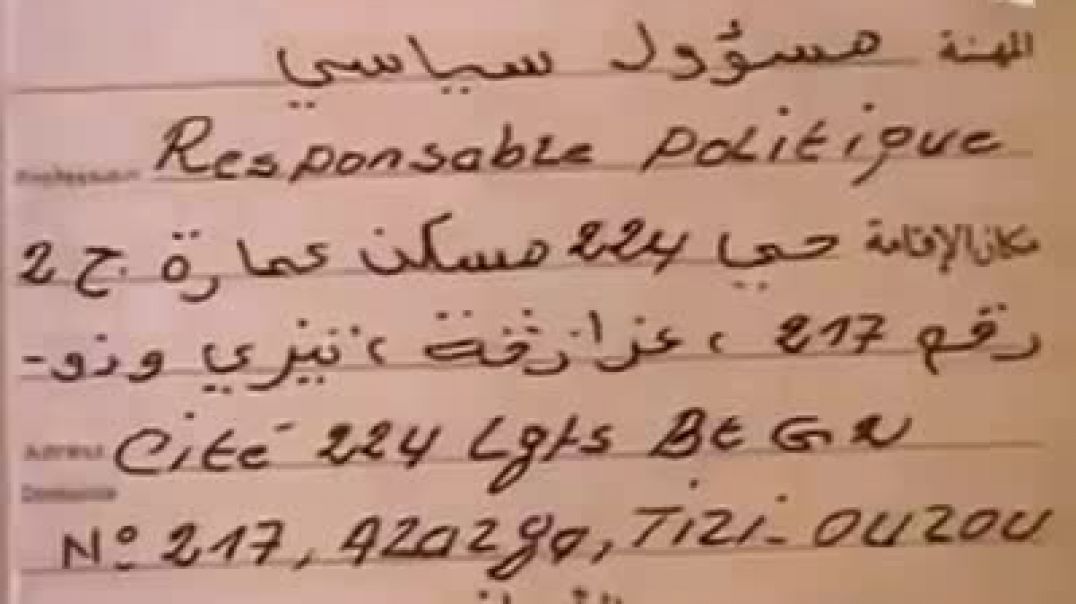 المهنة مسؤول سياسي
Profession Responsable politique
مكان الإقامة حي 224 مسكن عمارة ج 2
رقم 217 ، عزازقة ، تيزي وزو-
Adresse Cité 224 Lgts Bt G2
Domicile
N° 217, Azazga, Tizi-Ouzou